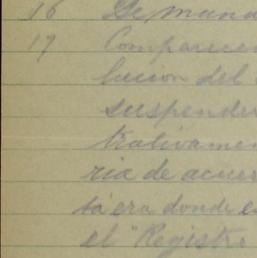 16 Se mana
17 Comparecen
lucion del
suspender
trativamen
ria de acuer
tá era donde e
el "Registro